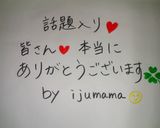 話題入り
皆さん 本当に
ありがとうございます
by ijumama